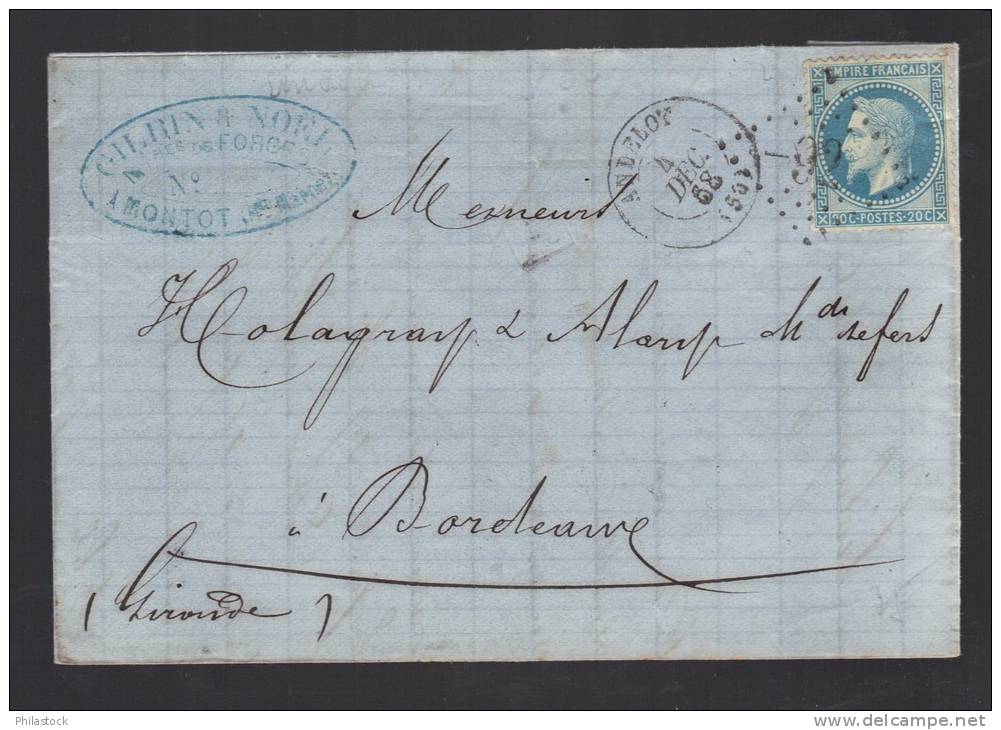 GILBIN & NOEL
FORGES
No
A MONTOT (Hte Marne)
ANDELOT
4
DEC.
68
(50)
EMPIRE FRANÇAIS
20C-POSTES-20C
Messieurs
Holagray & Alary Mds de fers
à Bordeaux
(Gironde)
Philastock
www.delcampe.net